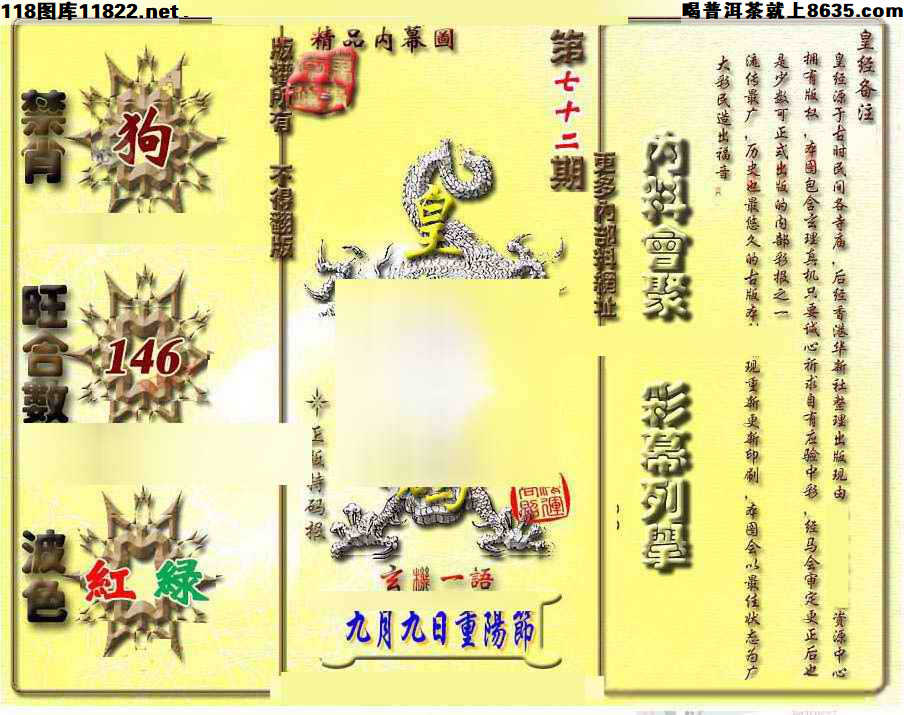 118图库11822.net .
喝普洱茶就上8635.com
精品内幕圖
第七十二期
版權所有 不得翻版
更多内部料網址
禁肖
狗
旺合數
146
波色
紅 綠
皇
正版特码报
玄機一語
九月九日重陽節
内料會聚
彩幕列擧
皇经备注
皇经源于古时民间各寺庙，后经香港华新社整理出版现由
资源中心
拥有版权，本图包含玄理真机只要诚心祈求自有应验中彩，经马会审定更正后也
是少数可正式出版的内部彩报之一
流传最广，历史也最悠久的古版本
现重新更新印刷，本图会以最佳状态为广
大彩民造出福音